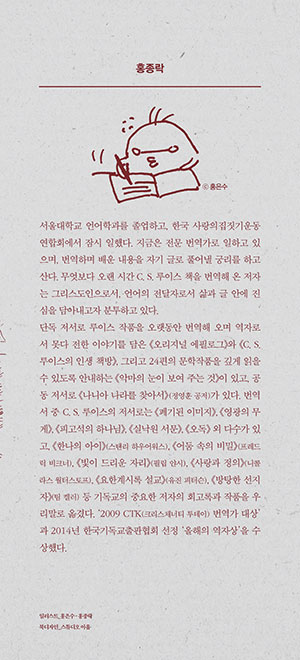 홍종락
ⓒ 홍은수
서울대학교 언어학과를 졸업하고, 한국 사랑의집짓기운동
연합회에서 잠시 일했다. 지금은 전문 번역가로 일하고 있
으며, 번역하며 배운 내용을 자기 글로 풀어낼 궁리를 하고
산다. 무엇보다 오랜 시간 C. S. 루이스 책을 번역해 온 저자
는 그리스도인으로서, 언어의 전달자로서 삶과 글 안에 진
심을 담아내고자 분투하고 있다.
단독 저서로 루이스 작품을 오랫동안 번역해 오며 역자로
서 못다 전한 이야기를 담은 《오리지널 에필로그》와 《C. S.
루이스의 인생 책방》, 그리고 24편의 문학작품을 깊게 읽을
수 있도록 안내하는 《악마의 눈이 보여 주는 것》이 있고, 공
동 저서로 《나니아 나라를 찾아서》(정영훈 공저)가 있다. 번역
서 중 C. S. 루이스의 저서로는 《폐기된 이미지》, 《영광의 무
게》, 《피고석의 하나님》, 《실낙원 서문》, 《오독》 외 다수가 있
고, 《한나의 아이》(스탠리 하우어워스), 《어둠 속의 비밀》(프레드
릭 비크너), 《빛이 드리운 자리》(필립 얀시), 《사랑과 정의》(니콜
라스 월터스토프), 《요한계시록 설교》(유진 피터슨), 《방탕한 선지
자》(팀 켈러) 등 기독교의 중요한 저자의 회고록과 작품을 우
리말로 옮겼다. ‘2009 CTK(크리스채너티 투데이) 번역가 대상’
과 2014년 한국기독교출판협회 선정 ‘올해의 역자상’을 수
상했다.
일러스트_홍은수·홍종락
북디자인_스튜디오 아홉